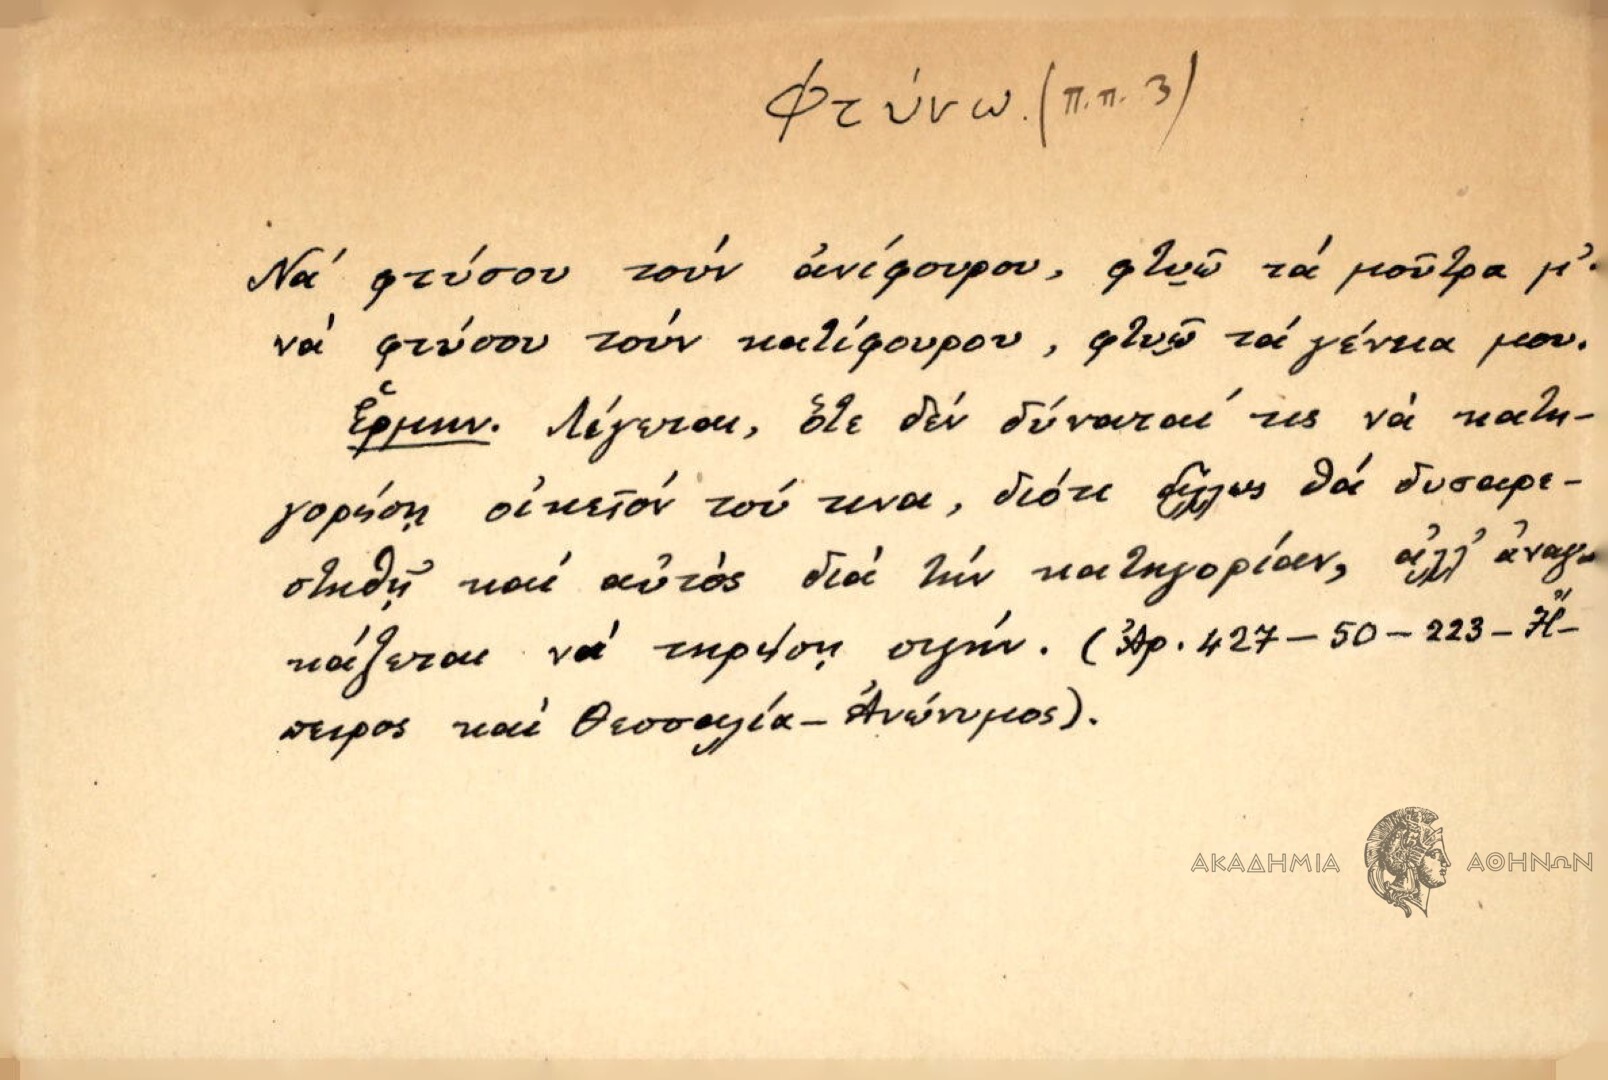 Φτύνω. (π.π. 3)
Νά φτύσου τούν ἀνίφουρου, φτυῶ τά μοῦτρα μ'.
νά φτύσου τούν κατίφουρου, φτυῶ τά γένεια μου.
Ἑρμην. Λέγεται, ὅτι δέν δύναταί τις νά κατη-
γορήσῃ οἰκεῖόν τού τινα, διότι ἄλλως θά δυσαρε-
στηθῇ καί αὐτός διά τήν κατηγορίαν, ἀλλ' ἀναγ-
κάζεται νά τηρήσῃ σιγήν. (Ἀρ. 427 - 50 - 223 - Ἤ-
πειρος καί Θεσσαλία - Ἀνώνυμος).
ΑΚΑΔΗΜΙΑ ΑΘΗΝΩΝ